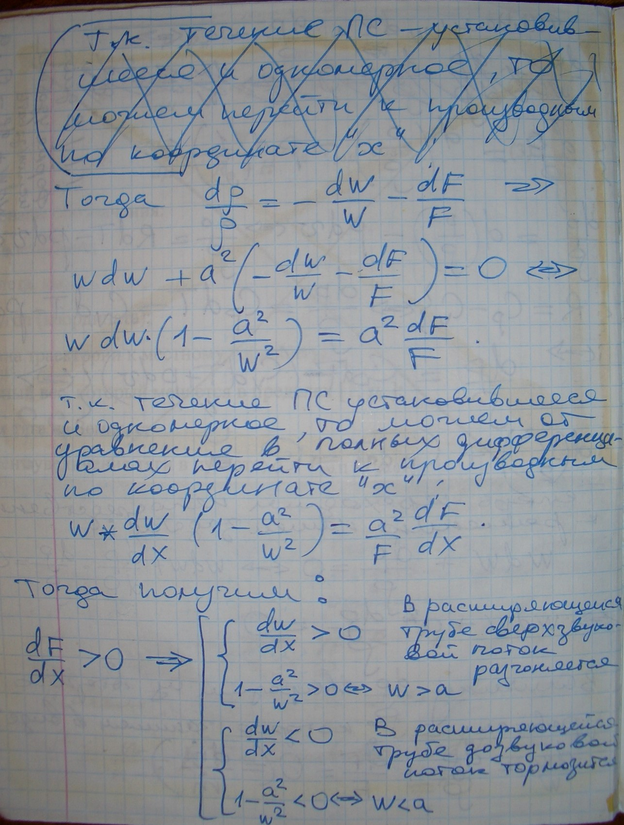 Т.к. течение ПС – установив-
шееся и одномерное, то
можем перейти к производным
по координате "x",
Тогда dρ/ρ = - dw/w - dF/F ⇒
w dw + a² (- dw/w - dF/F) = 0 ⇔
w dw·(1 - a²/w²) = a² dF/F .
т.к. течение ПС установившееся
и одномерное, то можем от
уравнение в полных дифференци-
алах перейти к производным
по координате "x",
w * dw/dx (1 - a²/w²) = a²/F dF/dx .
Тогда получим:
dF/dx > 0 ⇒
dw/dx > 0
1 - a²/w² > 0 ⇔ w > a
В расширяющейся
трубе сверхзвуко-
вой поток
разгоняется
dw/dx < 0
1 - a²/w² < 0 ⇔ w < a
В расширяющейся
трубе дозвуковой
поток тормозится